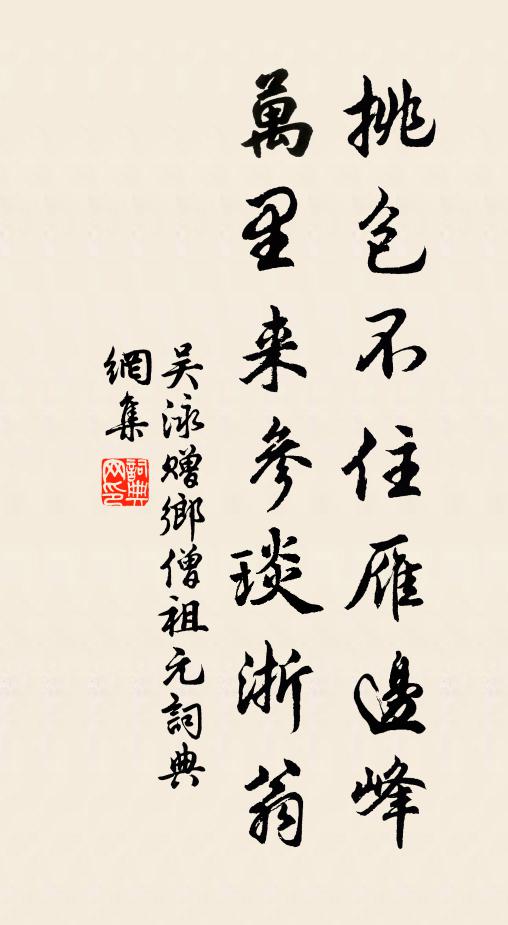 挑包不住雁邊峰
萬里来參琰浙翁
吴泳贈鄉僧祖元詞典
網集
詞典网印